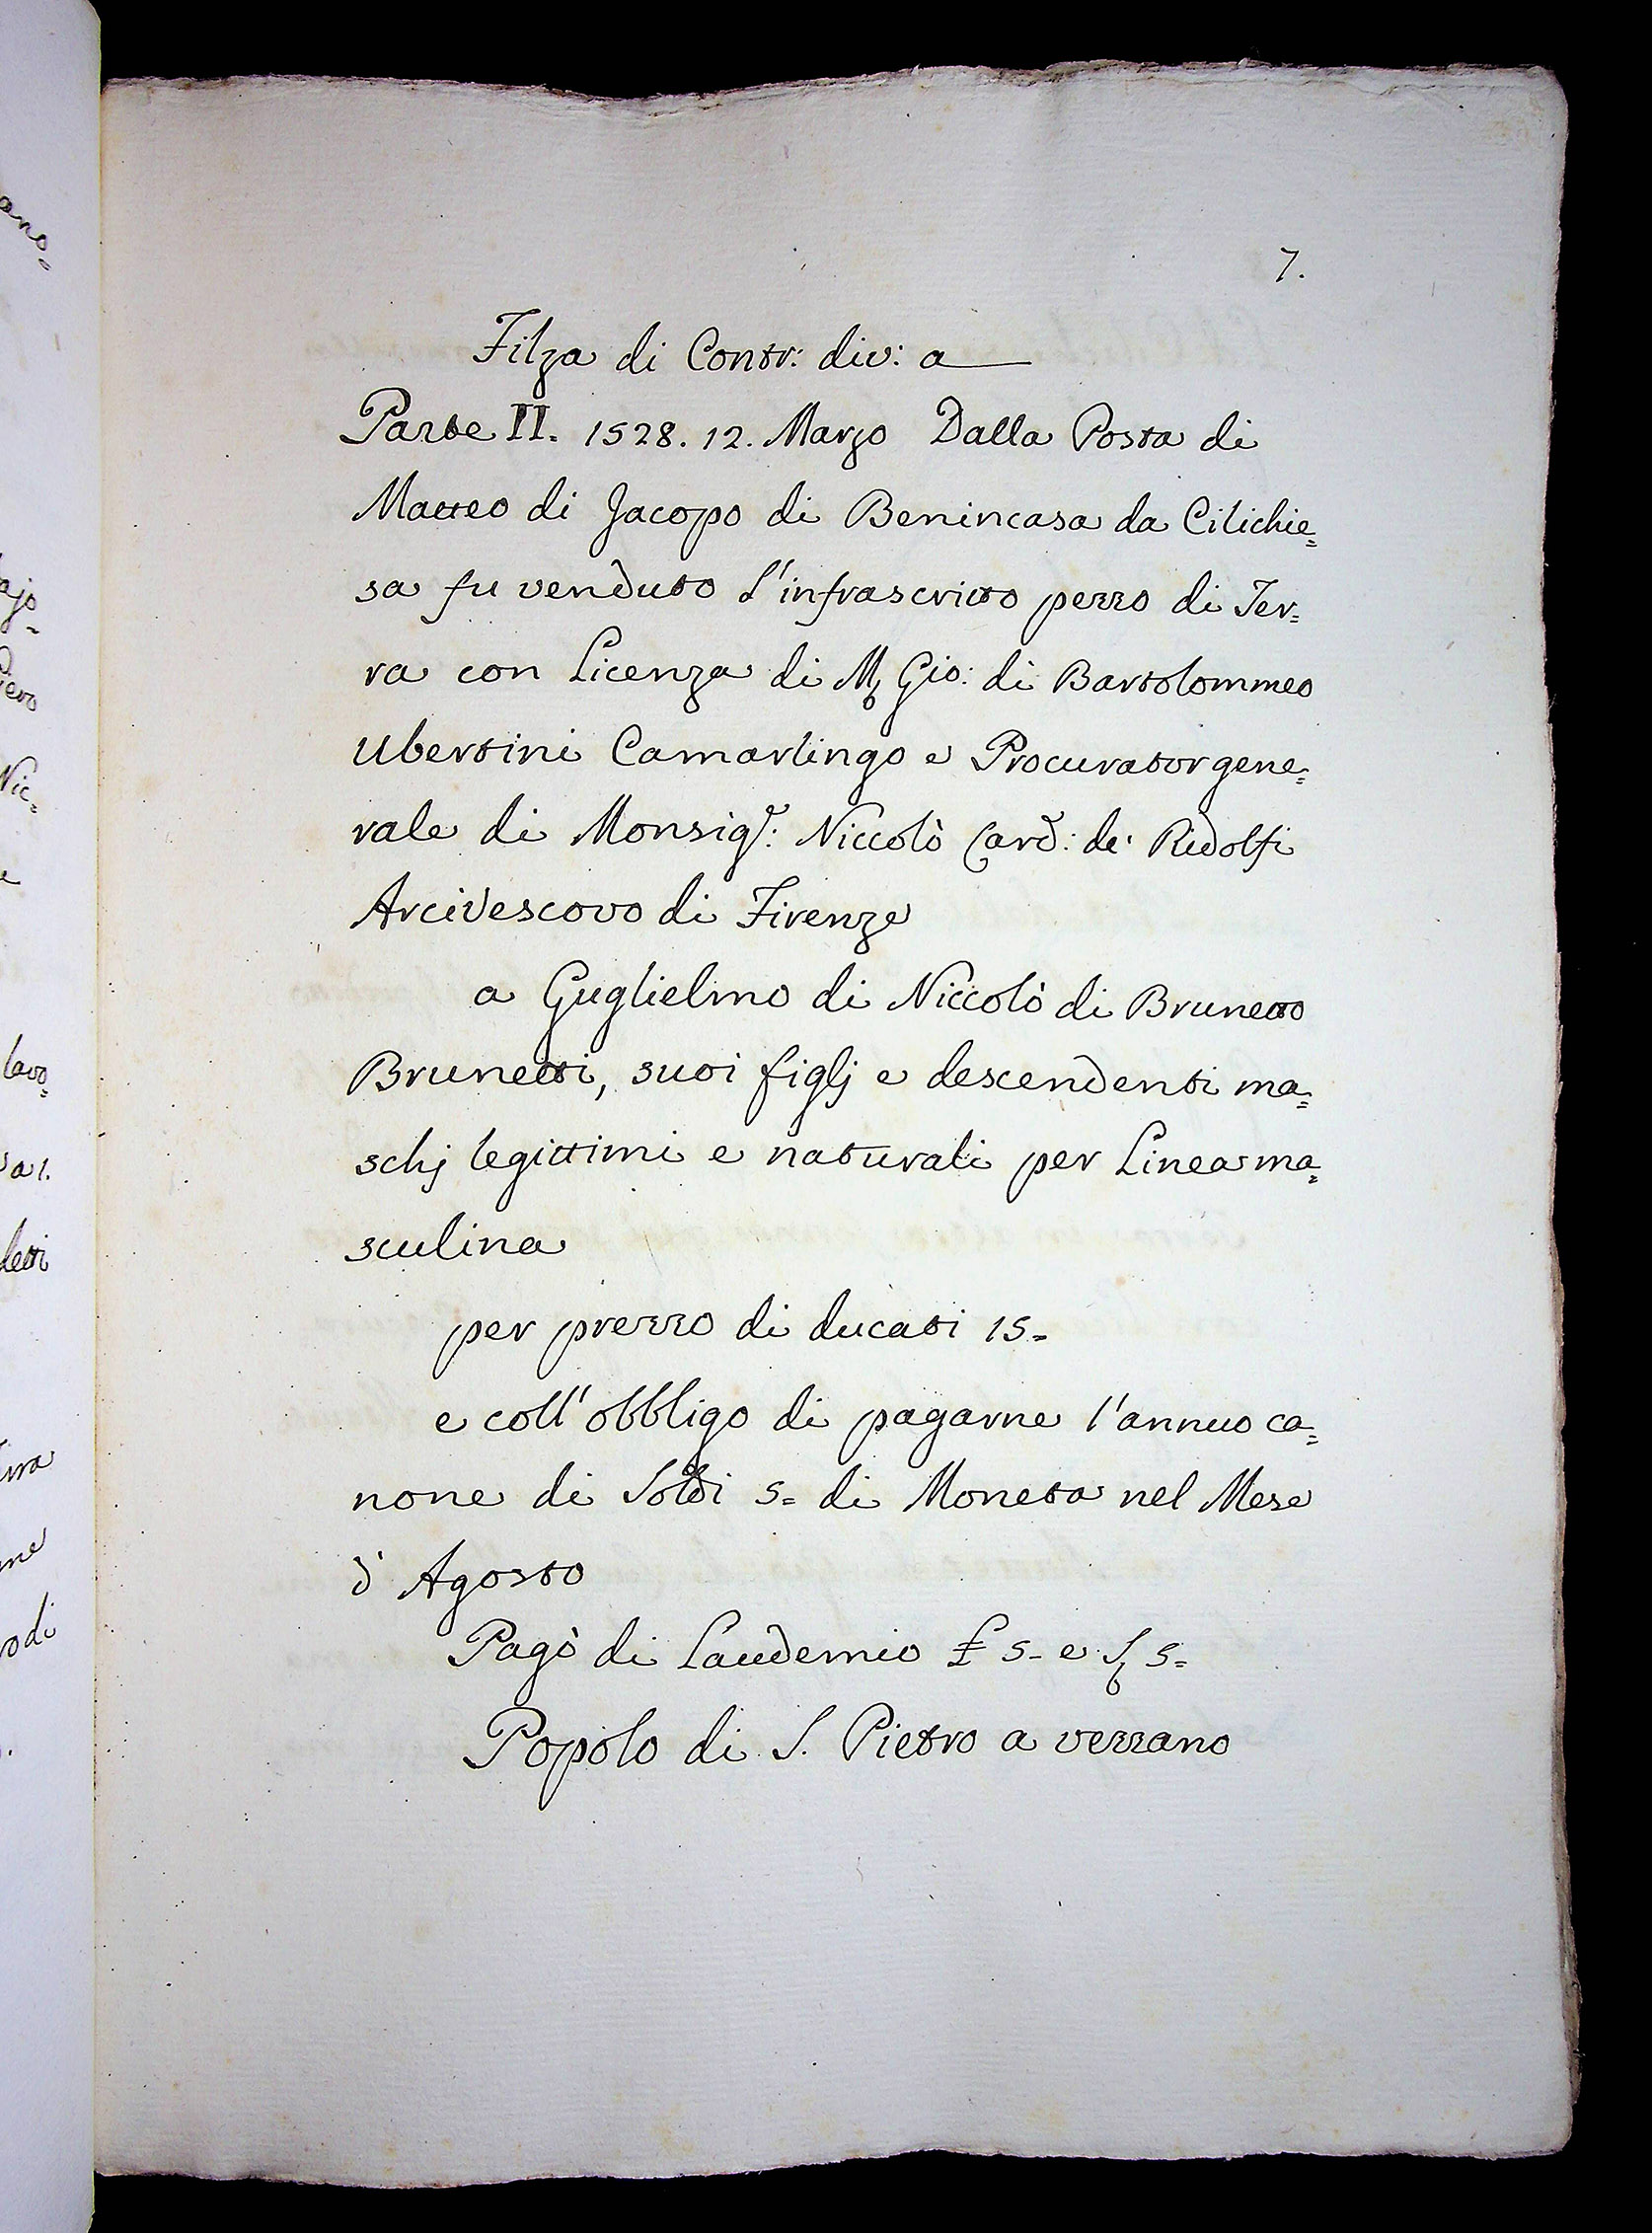 7.
Filza di Contr: div: a
Parte II. 1528. 12. Marzo Dalla Posta di
Matteo di Jacopo di Benincasa da Cilichie=
sa fu venduto l'infrascritto pezzo di Ter=
ra con Licenza di M Gio: di Bartolommeo
Ubertini Camarlingo e Procurator gene=
rale di Monsigr: Niccolò Card: de' Ridolfi
Arcivescovo di Firenze
a Guglielmo di Niccolò di Brunetto
Brunetti, suoi figlj e descendenti ma=
schj legittimi e naturali per Linea ma=
sculina
per prezzo di ducati 15=
e coll'obbligo di pagarne l'annuo ca=
none di Soldi 5= di Moneta nel Mese
d'Agosto
Pagò di Laudemio £ 5- e S 5=
Popolo di S. Pietro a verzano
ano=
ajo=
iero
Nic=
e
lavo=
a 1.
letti
rra
me
o di